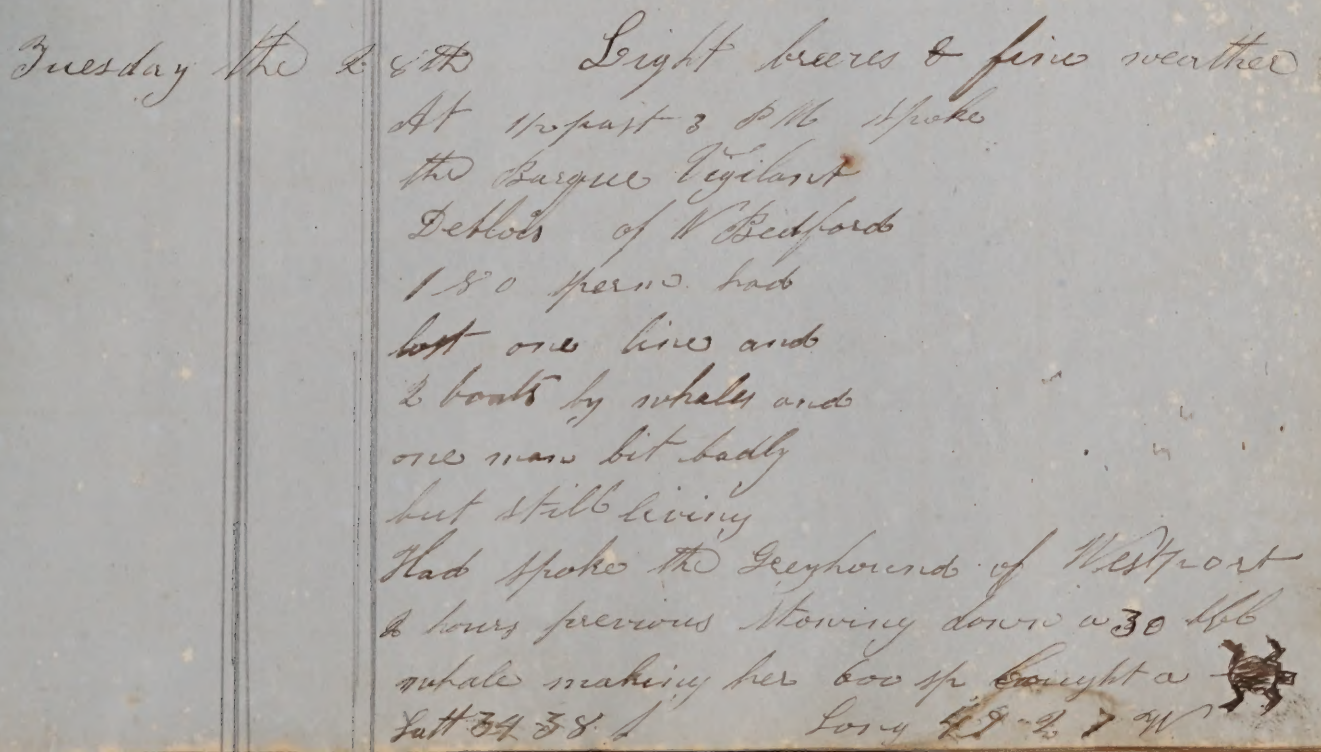 Tuesday the 28th Light breezes & fine weather
At 1/2 past 3 PM spoke
the Barque Vigilant
Deblois of N Bedford
180 sperm had
lost one line and
2 boats by whales and
one man bit badly
but still living
Had spoke the Greyhound of Westport
2 hours previous stowing down a 30 bbl
whale making her 600 sp Caught a
Latt 34 38 Long 42 27 W